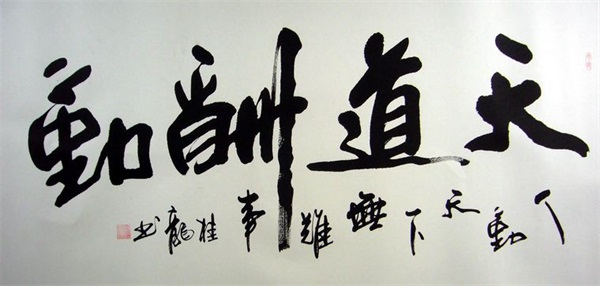 天道酬勤
人勤天下無難事 桂龍书